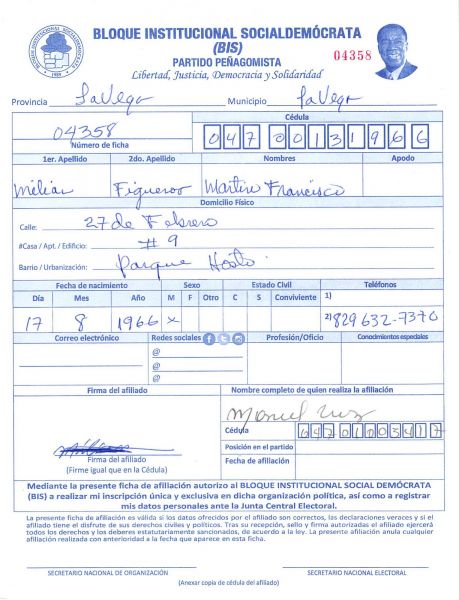 BLOQUE INSTITUCIONAL SOCIALDEMÓCRATA
(BIS)
PARTIDO PEÑAGOMISTA
Libertad, Justicia, Democracia y Solidaridad
04358
Provincia La Vega Municipio La Vega
04358
Número de ficha
Cédula
047 0013196 6
1er. Apellido 2do. Apellido Nombres Apodo
Milián Figueroo Martire Francisco
Domicilio Físico
Calle: 27 de Febrero
#Casa / Apt. / Edificio: #9
Barrio / Urbanización: Parque Hosto
Fecha de nacimiento Sexo Estado Civil Teléfonos
Día Mes Año M F Otro C S Conviviente 1)
17 8 1966 x 2) 829 632-7370
Correo electrónico Redes sociales Profesión/Oficio Conocimientos especiales
@
@
@
Firma del afiliado Nombre completo de quien realiza la afiliación
Manuel
Cédula 04701003417
Posición en el partido
Fecha de afiliación
Firma del afiliado
(Firme igual que en la Cédula)
Mediante la presente ficha de afiliación autorizo al BLOQUE INSTITUCIONAL SOCIAL DEMÓCRATA
(BIS) a realizar mi inscripción única y exclusiva en dicha organización política, así como a registrar
mis datos personales ante la Junta Central Electoral.
La presente ficha de afiliación es válida si los datos ofrecidos por el afiliado son correctos, las declaraciones veraces y si el
afiliado tiene el disfrute de sus derechos civiles y políticos. Tras su recepción, sello y firma autorizadas el afiliado ejercerá
todos los derechos y los deberes estatutariamente sancionados, de acuerdo a la ley. La presente afiliación anula cualquier
afiliación realizada con anterioridad a la fecha que aparece en esta ficha.
SECRETARIO NACIONAL DE ORGANIZACIÓN SECRETARIO NACIONAL ELECTORAL
(Anexar copia de cédula del afiliado)